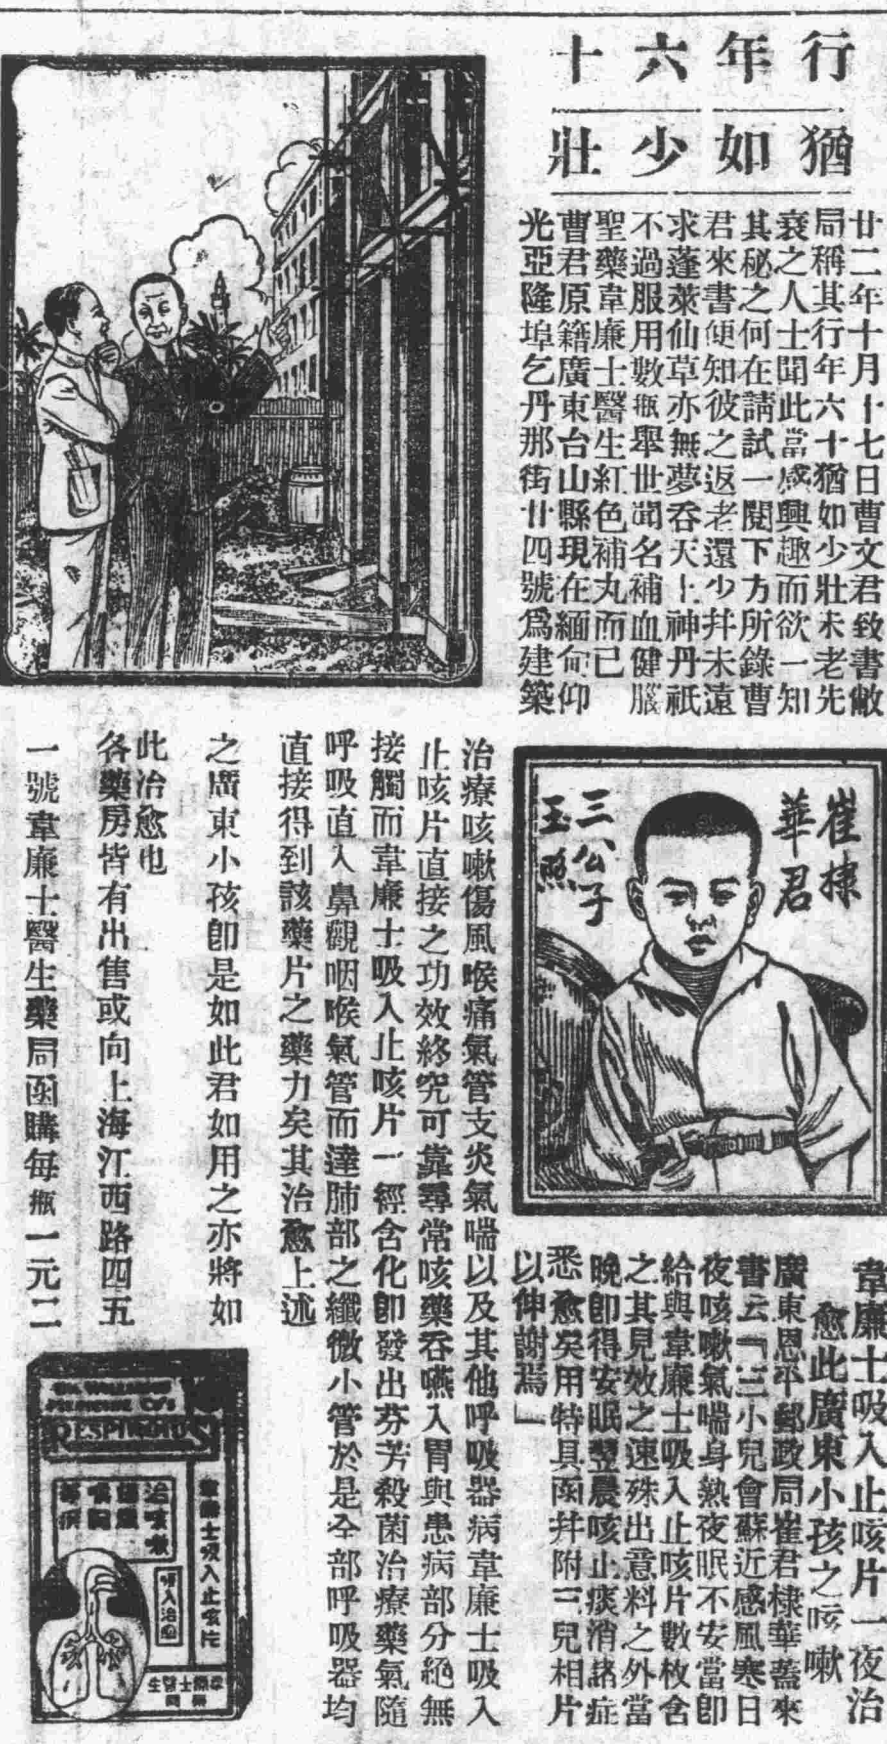 行年六十
猶如少壯
廿二年十月十七日曹文君致書敝
局稱其行年六十猶如少壯未老先
衰之人士聞此當感興趣而欲一知
其秘之何在請試一閱下方所錄曹
君來書便知彼之返老還少幷未遠
求蓬萊仙草亦無夢吞天上神丹祇
不過服用數瓶舉世聞名補血健腦
聖藥韋廉士醫生紅色補丸而已
曹君原籍廣東台山縣現在緬甸仰
光亞隆埠乞丹那街廿四號爲建築
崔棣
華君
三公子
玉照
韋廉士吸入止咳片一夜治
愈此廣東小孩之咳嗽
廣東恩平郵政局崔君棣華蓋來
書云『三小兒會蘇近感風寒日
夜咳嗽氣喘身熱夜眠不安當卽
給與韋廉士吸入止咳片數枚含
之其見效之速殊出意料之外當
晚卽得安眠翌晨咳止痰消諸症
悉愈矣用特具函幷附三兒相片
以伸謝焉』
治療咳嗽傷風喉痛氣管支炎氣喘以及其他呼吸器病韋廉士吸入
止咳片直接之功效終究可靠尋常咳藥吞嚥入胃與患病部分絕無
接觸而韋廉士吸入止咳片一經含化卽發出芬芳殺菌治療藥氣隨
呼吸直入鼻觀咽喉氣管而達肺部之纖微小管於是全部呼吸器均
直接得到該藥片之藥力矣其治愈上述
之廣東小孩卽是如此君如用之亦將如
此治愈也
各藥房皆有出售或向上海江西路四五
一號韋廉士醫生藥局函購每瓶一元二
DR. WILLIAMS
MEDICINE CO'S
RESPIROIDS
韋廉士吸入止咳片
治咳嗽
吸入治肺